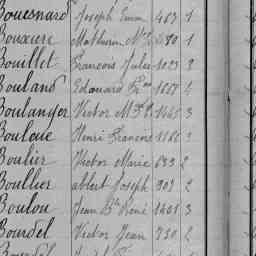 Bouesnard Joseph Emm 463 1
Bouxiere Mathurin 480 1
Bouillet François Jules 1023 2
Bouland Edouard 1657 4
Boulanger Victor 1445 3
Bouloue Henri François 1160 3
Boulier Victor Marie 633 2
Boullier albert Joseph 909 2
Boulou Jean Bte René 1401 3
Bourdel Victor Jean 730 2